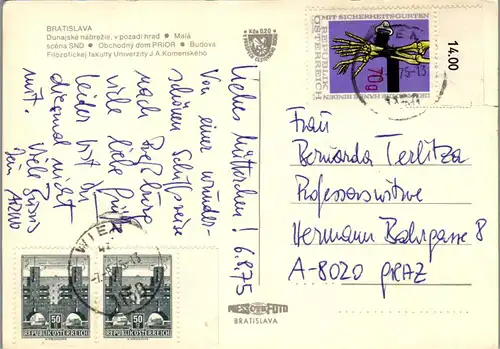 BRATISLAVA
Dunajské nábrežie, v pozadí hrad • Malá
scéna SND • Obchodný dom PRIOR • Budova
Filozofickej fakulty Univerzity J. A. Komenského
Kčs 0,20
Liebes Mütterchen! 6.8.75
Von einer wunder-
schönen Schiffsreise
nach Preßburg
viele liebe Grüße
leider ist der
diesmal nicht
mit. Viele Bussis
Dein
MIT SICHERHEITSGURTEN
REPUBLIK
ÖSTERREICH
70g
14.00
WIEN
75-13
Frau
Bernarda Terlitza
Professorswitwe
Hermann Bahrgasse 8
A-8020 GRAZ
WIEN
50
REPUBLIK ÖSTERREICH
50
REPUBLIK ÖSTERREICH
PRESSFOTO
BRATISLAVA